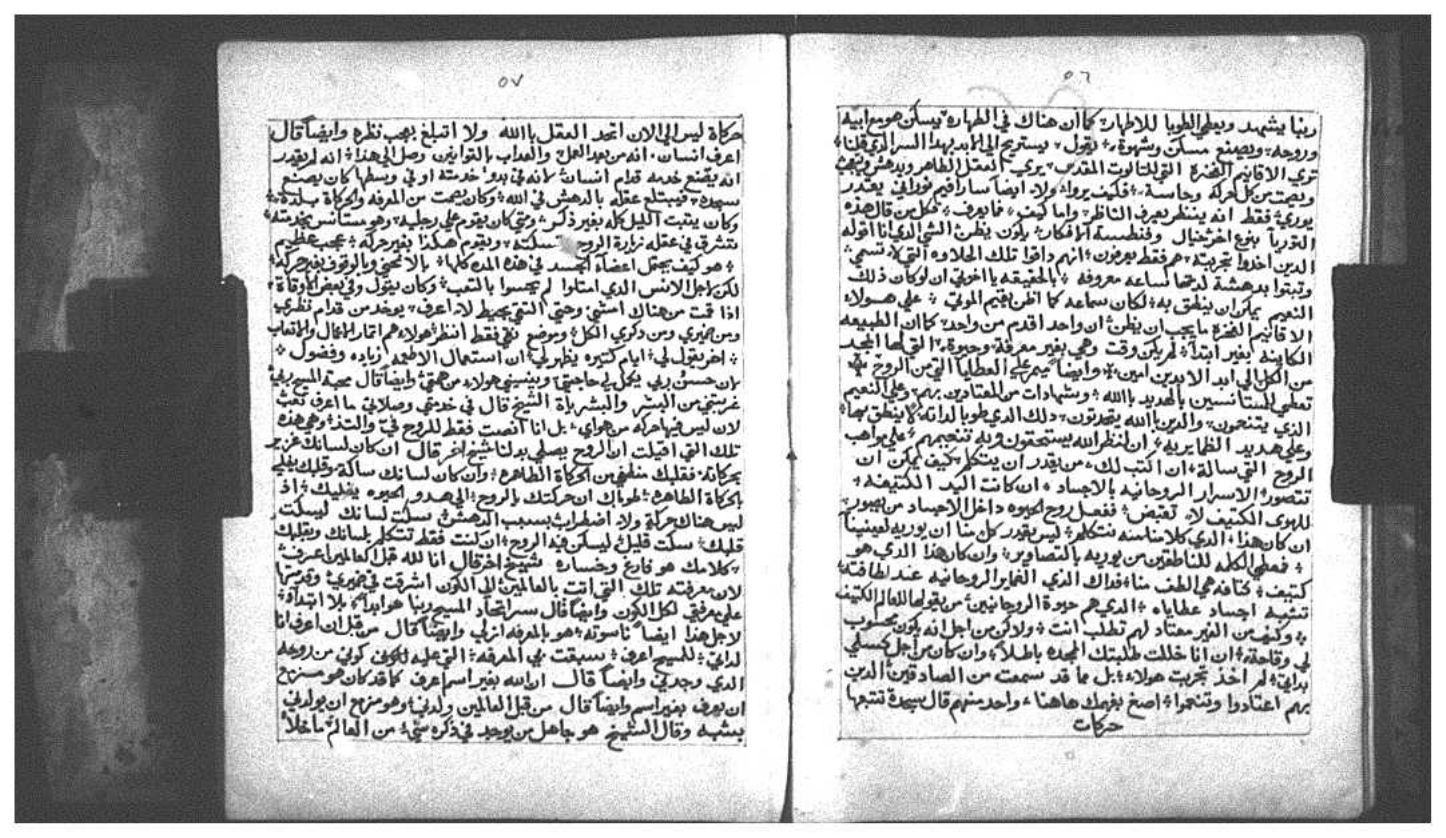 ٥٦
ربنا يشهد ويعطي الطوبا للاطهار كما ان هناك في الطهاره يسكن هو مع ابيه
وروحه ويصنع مسكن وبشهوة نقول يستريح الى الابد بهدا السر الدي قلنا
تري الاقانيم النضرة التي للتالوت المقدس يري العقل الطاهر ويدهش ويتعجب
ويصمت من كل حركه وحاسة فكيف يروا ولا ايضا سارافيم نوراني يقدر
يوري فقط انه ينظر يعرف الناظر واما كيف فما يعرف فكل من قال هده
التوريا بنوع اخر خيال وفنطسية الافكار يكون يظن الشي الدي انا اقوله
الدين اخدوا تجربته هم فقط يعرفون انهم داقوا تلك الحلاوه التي لا تسمي
وتبتوا بدهشة لدتها لساعه معروفه بالحقيقه يا اخوتي ان لو كان دلك
النعيم يمكن ان ينطق به لكان سماعه كما اظن يقيم الموتي علي هولاء
الاقانيم النضرة ما يجب ان يظن ان واحد اقدم من واحد كما ان الطبيعه
الكاينة بغير ابتدا لم يكن وقت وهي بغير معرفة وحيوة التي لها المجد
من الكل الى ابد الابدين امين وايضا ميمر علي العطايا التي من الروح
تعطي للمستانسين بالهديد بالله وشهادات من المعتادين بهم وعلي النعيم
الدي يتنحون والدين بالله يتحدتون دلك الدي طوبا لداته لا ينطق بها
وعلي هديد الظمايريه ان لنظر الله يستحقون وبه تنحيهم علي مواهب
الروح التي سالة ان اكتب لك من يقدر ان يتكلم كيف يمكن ان
تتصور الاسرار الروحانيه بالاجساد ان كانت اليد الكتيفه
للهوى الكتيف لا تقبض ففعل روح الحيوه داخل الاجساد من يصور
ان كان هدا الدي كلامنا منه نتكلم ليس يقدر كل منا ان يوريه لعينينا
فعطي الكلمه للناطقين من يوريه بالتصاوير وان كان هدا الدي هو
كتيف كتافه هي الطف منا فداك الدي الغماير الروحانيه عند لطافته
تشبه اجساد عطاياه الدي هم حيوة الروحانيين من يقولها للعالم الكتيف
وكيف من الغير معتاد لهم تطلب انت ولاكن من اجل انه يكون محسوب
لي وقاحة ان انا خللت طلبتك المجده باطلا وان كان من اجل كسلي
بداتي لم اخد تجربت هولاء بل مما قد سمعت من الصادقين الدين
بهم اعتادوا وتنحوا اصغ بفهمك هاهنا واحد منهم قال سجدة تتبعها
حركات
٥٧
حركاة ليس الى الان اتحد العقل بالله ولا اتبلغ بعجب نظره وايضا قال
اعرف انسان انه من بعد العمل والعداب بالقوانين وصل الى هدا انه لم يقدر
انه يصنع خدمه قدام انسان لانه في بدو خدمته او في وسطها كان يصنع
سجده فيبتلع عقله بالدهش في الله وكان يصمت من المعرفه والحركاة بلدة
وكان يتبت الليل كله بغير دكر ومتي كان يقوم علي رجليه وهو مستانس بخدمته
تشرق في عقله زيارة الروح تسكته ويقوم هكدا بغير حركه عجب عظيم
هو كيف يحتمل اعضاء الجسد في هده المده كلها بالانحني وبالوقوف بغير حركه
لكن لاجل الانس الدي امتلوا لم يحسوا بالتعب وكان يقول وفي بعض الاوقاة
ادا قمت من هناك امشي وحتي التي يحيط لا اعرف يوخد من قدام نظري
ومن ضميري ومن دكري الكل وموضع نقي فقط انظر هولاء هم اتمار الاعمال والاتعاب
اخر يقول لي ايام كتيره يظهر لي ان استعمال الاطعمه زياده وفضول
لان حسن ربي يكمل لي حاجتي وينسيني هولاء من همتي وايضا قال محبة المسيح ربي
غربتني من البشر والبشرياة الشيخ قال في خدمتي وصلاتي ما اعرف تعب
لان ليس فيها حركه من هواي بل انا انصت فقط للروح في والتد وهي هده
تلك التي اقيلت ان الروح يصلي بدلنا شيخ اخر قال ان كان لسانك غزير
بحركاته فقلبك منطفي من الحركاة الطاهره وان كان لسانك ساكة وقلبك يغلي
بالحركاة الطاهره طوباك ان حركتك بالروح الى هدو الحيره يغليك اد
ليس هناك حركة ولا اضطراب بسبب الدهش سكت لسانك ليسكت
قلبك سكت قلبك ليسكن فيه الروح ان كنت فقط تتكلم بلسانك وبقلبك
كلامك هو فارغ وخساره شيخ اخر قال انا لله قبل العالمين اعرف
لان معرفته تلك التي اتت بالعالمين الى الكون اشرقت في ضميري وقدمتها
علي معرفتي لكل الكون وايضا قال سر اتحاد المسيح ربنا هو ابدا بلا ابتداء
لاجل هدا ايضا ناسوته هو بالمعرفه ازلي وايضا قال من قبل ان اعرف انا
لداتي للمسيح اعرف سبقت بي المعرفه التي عليه لكوني كوني من روحه
الدي وجدني وايضا قال ان الله بغير اسم اعرف كما قد كان هو مزمع
ان يعرف بغير اسم وايضا قال من قبل العالمين ولدني وهو مزمع ان يولدني
بشبه وقال الشيخ هو جاهل من يوجد في دكره شي من العالم ما خلا